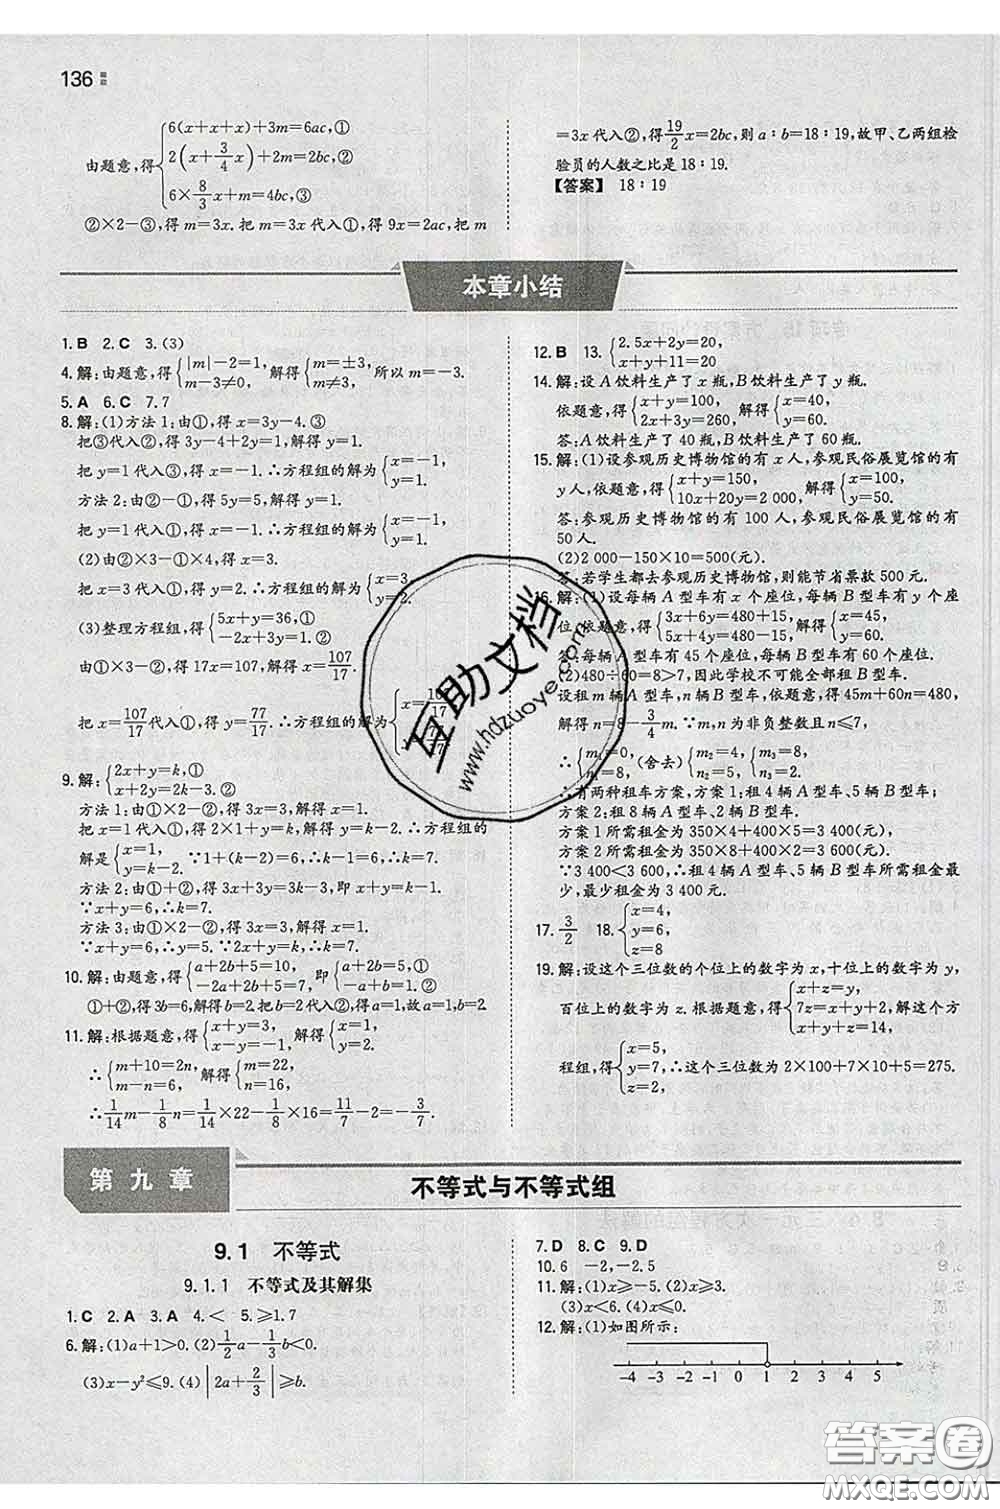 136
由题意,得{6(x+x+x)+3m=6ac,①
2(x+3/4x)+2m=2bc,②
6×8/3x+m=4bc,③
②×2-③,得 m=3x.把 m=3x 代入①,得 9x=2ac,把 m
=3x 代入②,得19/2x=2bc,则 a:b=18:19,故甲、乙两组检
验员的人数之比是 18:19.
【答案】 18:19
本章小结
1.B 2.C 3.(3)
4.解:由题意,得{|m|-2=1, m-3≠0, 解得{m=±3, m≠3, 所以 m=-3.
5.A 6.C 7.7
8.解:(1)方法 1:由①,得 x=3y-4.③
把③代入②,得 3y-4+2y=1,解得 y=1.
把 y=1 代入③,得 x=-1,∴方程组的解为{x=-1, y=1.
方法 2:由②-①,得 5y=5,解得 y=1.
把 y=1 代入①,得 x=-1,∴方程组的解为{x=-1, y=1.
(2)由②×3-①×4,得 x=3.
把 x=3 代入①,得 y=2.∴方程组的解为{x=3,
(3)整理方程组,得{5x+y=36,① -2x+3y=1.②
由①×3-②,得 17x=107,解得 x=107/17.
把 x=107/17代入①,得 y=77/17.∴方程组的解为
9.解:{2x+y=k,① x+2y=2k-3.②
方法 1:由①×2-②,得 3x=3,解得 x=1.
把 x=1 代入①,得 2×1+y=k,∴y=k-2.∴方程组的
解是{x=1, y=k-2. ∵1+(k-2)=6,∴k-1=6,∴k=7.
方法 2:由①+②,得 3x+3y=3k-3,即 x+y=k-1.
∵x+y=6,∴k-1=6.∴k=7.
方法 3:由①×2-②,得 3x=3,∴x=1.
∵x+y=6,∴y=5.∴k=2x+y=2+5=7.
10.解:由题意,得{a+2b+5=10, -a+2b+5=7, 即{a+2b=5,① -a+2b=2,②
11.解:根据题意,得{x+y=3, x-y=-1, 解得{x=1, y=2.
∴{m+10=2n, m-n=6, 解得{m=22, n=16,
∴1/14m-1/8n=1/14×22-1/8×16=11/7-2=-3/7.
12.B 13.{2.5x+2y=20, x+y=9
14.解:设 A 饮料生产了 x 瓶,B 饮料生产了 y 瓶.
依题意,得{x+y=100, 2x+3y=260, 解得{x=40, y=60.
答:A 饮料生产了 40 瓶,B 饮料生产了 60 瓶.
15.解:(1)设参观历史博物馆的有 x 人,参观民俗展览馆的有
y 人,依题意,得{x+y=150, 10x+20y=2 000, 解得{x=100, y=50.
答:参观历史博物馆的有 100 人,参观民俗展览馆的有
50 人.
(2)2 000-150×10=500(元).
答:若学生都去参观历史博物馆,则能节省票款 500 元.
16.解:(1)设每辆 A 型车有 x 个座位,每辆 B 型车有 y 个座
位,依题意,得{3x+6y=480+15, 5x+4y=480-15, 解得{x=45, y=60.
答:每辆 A 型车有 45 个座位,每辆 B 型车有 60 个座位.
(2)480÷60=8>7,因此学校不可能全部租 B 型车.
设租 m 辆 A 型车,n 辆 B 型车,依题意,得 45m+60n=480,
解得 n=8-3/4m.∵m,n 为非负整数且 n≤7,
∴{m₁=0, n₁=8, (舍去) {m₂=4, n₂=5, {m₃=8, n₃=2.
∴有两种租车方案,方案 1:租 4 辆 A 型车、5 辆 B 型车;
方案 2:租 8 辆 A 型车、2 辆 B 型车.
方案 1 所需租金为 350×4+400×5=3 400(元),
方案 2 所需租金为 350×8+400×2=3 600(元).
∵3 400<3 600,∴租 4 辆 A 型车、5 辆 B 型车所需租金最
少,最少租金为 3 400 元.
17.3/2 18.{x=4, y=6, z=8
19.解:设这个三位数的个位上的数字为 x,十位上的数字为 y,
百位上的数字为 z.根据题意,得{x+z=y, 7z=x+y+2, x+y+z=14, 解这个方
程组,得{x=5, y=7, z=2, ∴这个三位数为 2×100+7×10+5=275.
第九章
不等式与不等式组
9.1 不等式
9.1.1 不等式及其解集
1.C 2.A 3.A 4.< 5.≥1.7
6.解:(1)a+1>0.(2)1/2a-1/3b<0.
(3)x-y²≤9.(4)|2a+2/3|≥b.
7.D 8.C 9.D
10.6 -2,-2.5
11.解:(1)x≥-5.(2)x≥3.
(3)x<6.(4)x≤0.
12.解:(1)如图所示:
-4 -3 -2 -1 0 1 2 3 4 5
互助文档
www.hdzuoye.com
答案圈
MXQE.COM